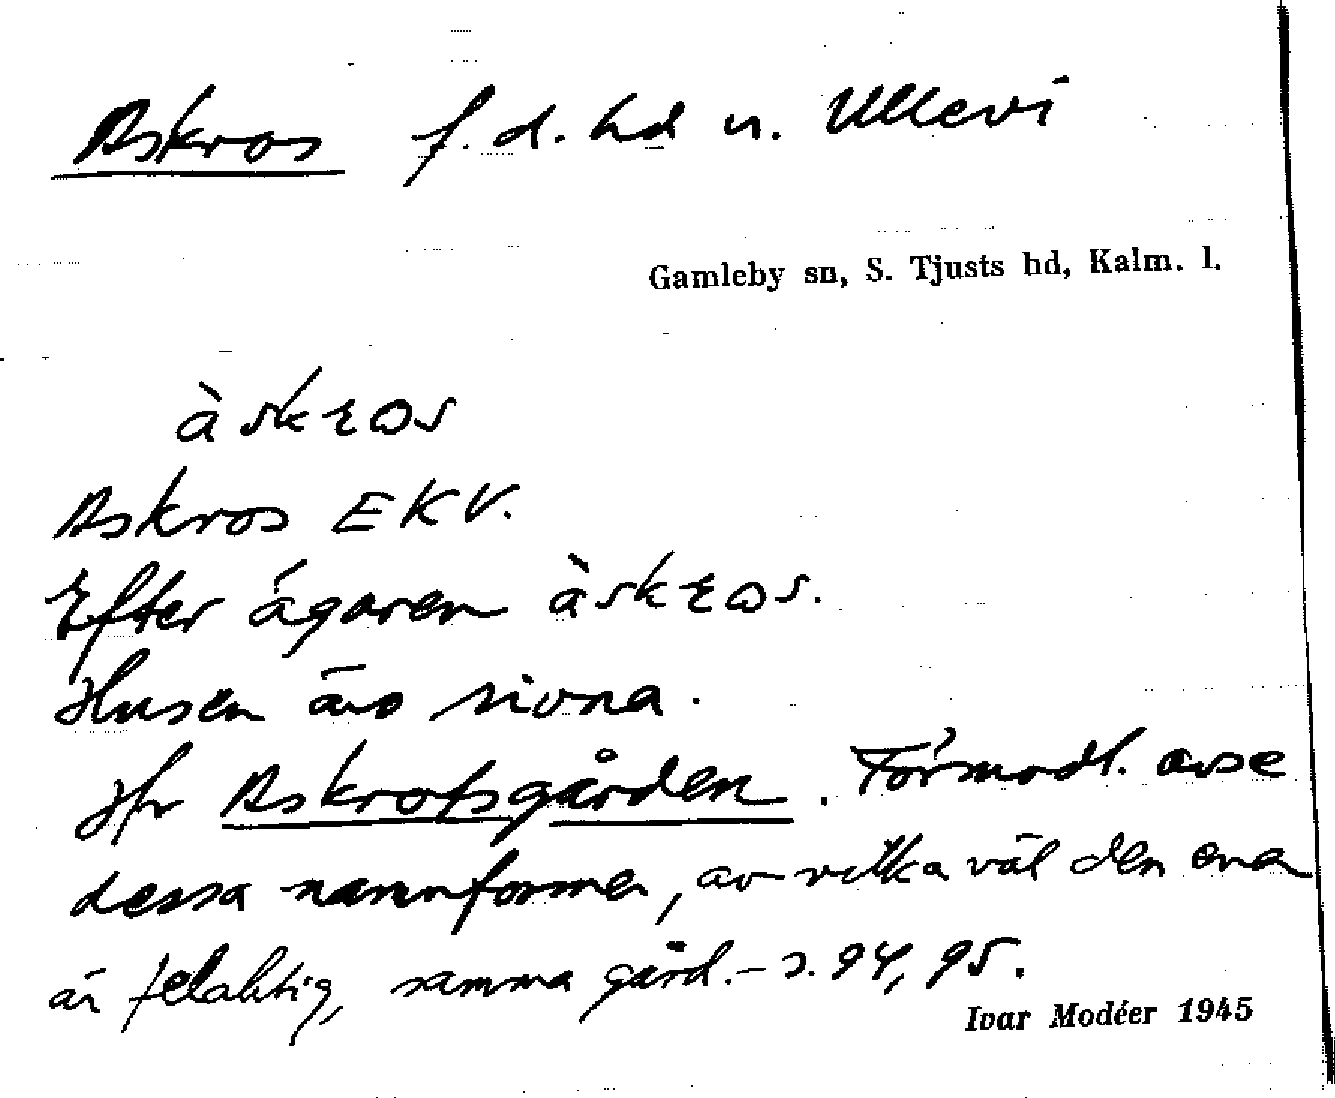 Askros f. d. hd u. Ullevi
Gamleby sn, S. Tjusts hd, Kalm. l.
àskros
Askros EKV.
Efter ägaren àskros.
Husen äro rivna.
Jfr Askrofsgården. Förmodl. avse
dessa namnformer, av vilka väl den ena
är felaktig, samma gård. – s. 94, 95.
Ivar Modéer 1945